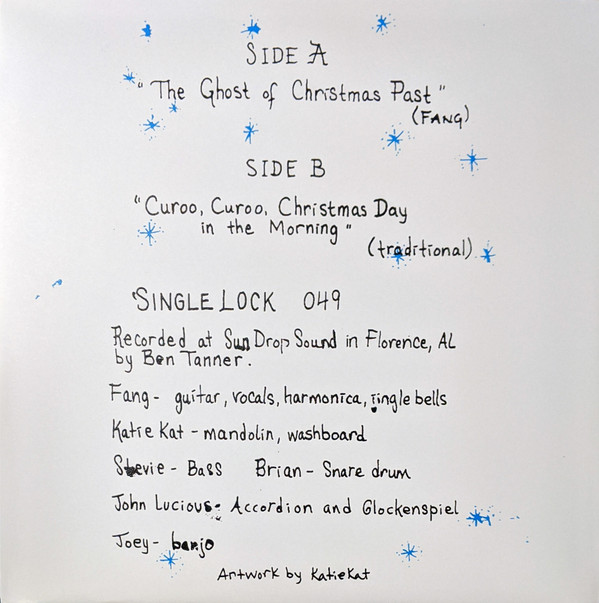 SIDE A
"The Ghost of Christmas Past"
(FANG)
SIDE B
"Curoo, Curoo, Christmas Day
in the Morning"
(traditional)
SINGLE LOCK 049
Recorded at Sun Drop Sound in Florence, AL
by Ben Tanner.
Fang - guitar, vocals, harmonica, jingle bells
Katie Kat - mandolin, washboard
Stevie - Bass Brian - Snare drum
John Lucious - Accordion and Glockenspiel
Joey - banjo
Artwork by KatieKat